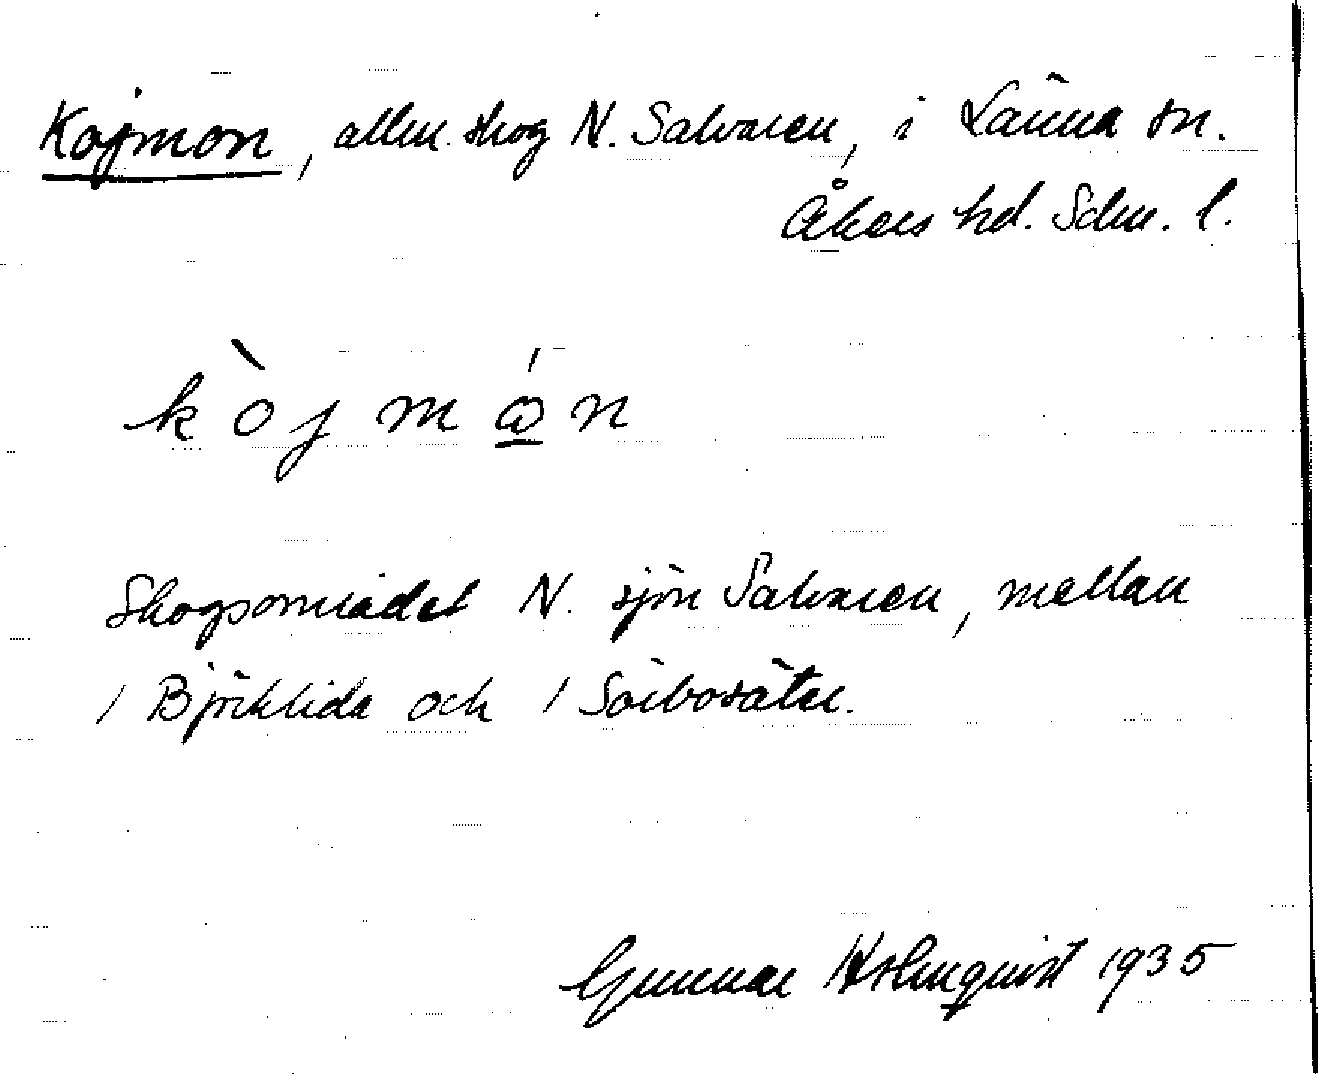 Kojmon, allm. skog N. Salvaren, i Länna sn.
Åkers hd. Södm. l.
k ò j m ó n
Skogsområdet N. sjön Salvaren, mellan
/ Björklida och / Sörbosäter.
Gunnar Holmquist 1935